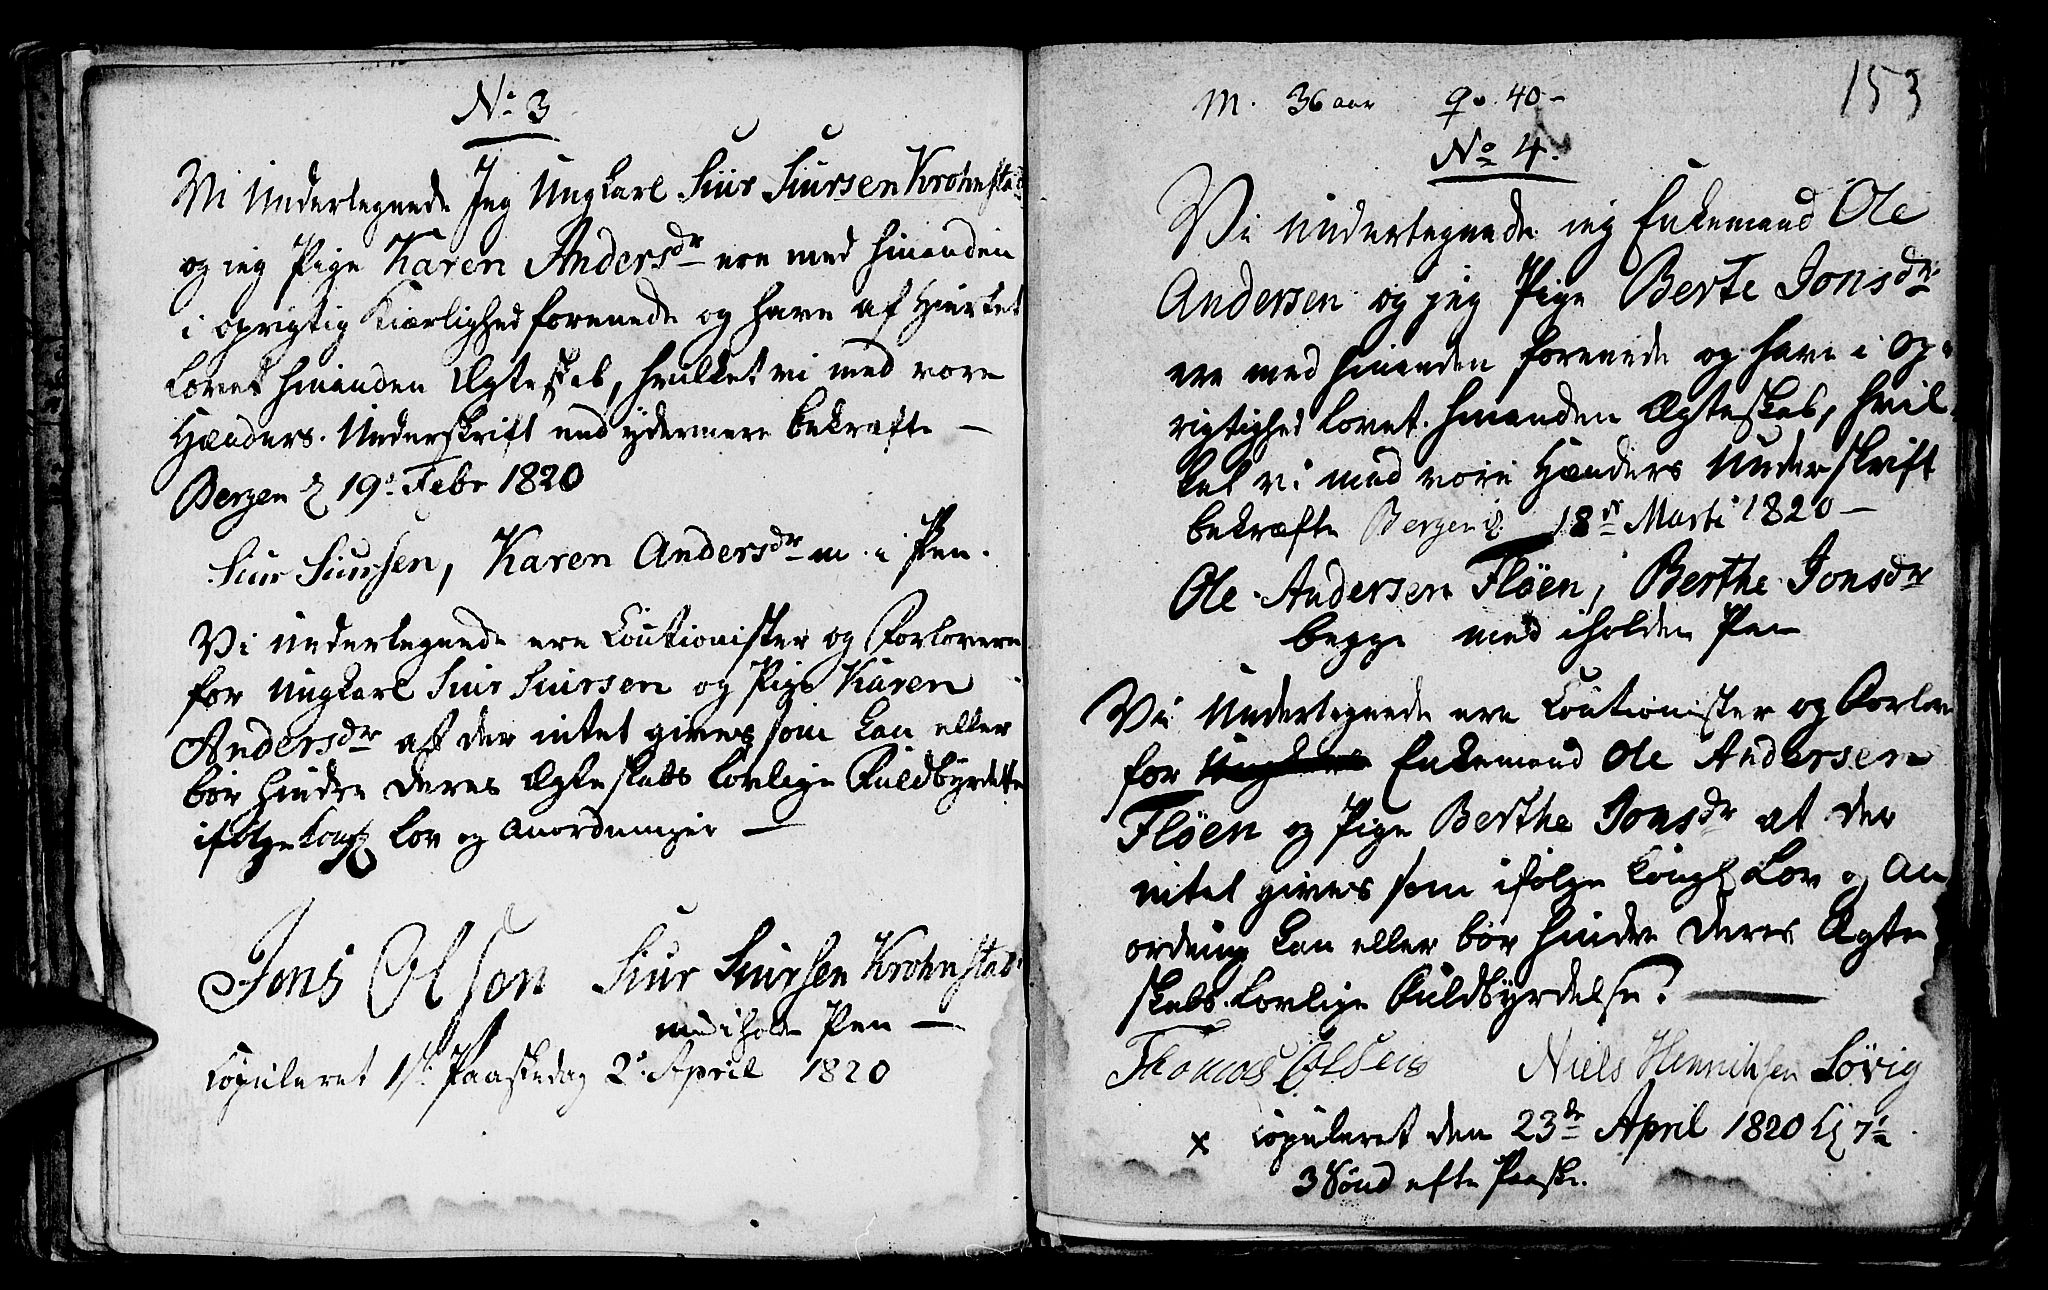 No 3
Vi Undertegnede Jeg Ungkarl Siur Siursen Krohnstad
og jeg Pige Karen Andersdr ere med hinanden
i oprigtig Kiærlighed forenede og have af Hiertet
lovet hinanden Ægteskab, hvilket vi med vore
Hænders Underskrift end ydermere bekræfte —
Bergen d 19. Febr 1820
Siur Siursen, Karen Andersdr m. i Pen.
Vi undertegnede ere Cautionister og Forlovere
for Ungkarl Siur Siursen og Pige Karen
Andersdr at der intet gives som kan eller
bør hindre deres Ægteskabs lovlige Fuldbyrdelse
ifølge Kongl Lov og Anordninger —
Jons Olson Siur Siursen Krohnstad
med iholden Pen —
Copuleret 1ste Paaskedag 2. April 1820
153
M. 36 aar Q. 40 —
No 4.
Vi undertegnede jeg Enkemand Ole
Andersen og jeg Pige Berte Jonsdr
ere med hinanden forenede og have i Op-
rigtighed lovet hinanden Ægteskab, hvil-
ket vi med vore Hænders Underskrift
bekræfte Bergen d. 18de Marti 1820 —
Ole Andersen Fløen, Berthe Jonsdr
begge med iholden Pen
Vi Undertegnede ere Cautionister og Forlov
for Ungkarl Enkemand Ole Andersen
Fløen og Pige Berthe Jonsdr at der
intet gives som ifølge Kongl Lov og An
ordning kan eller bør hindre deres Ægte
skabs lovlige Fuldbyrdelse. —
Thomas Olsen Niels Henrichsen Løvig
x Copuleret den 23de April 1820
3 Sønd efter Paaske.